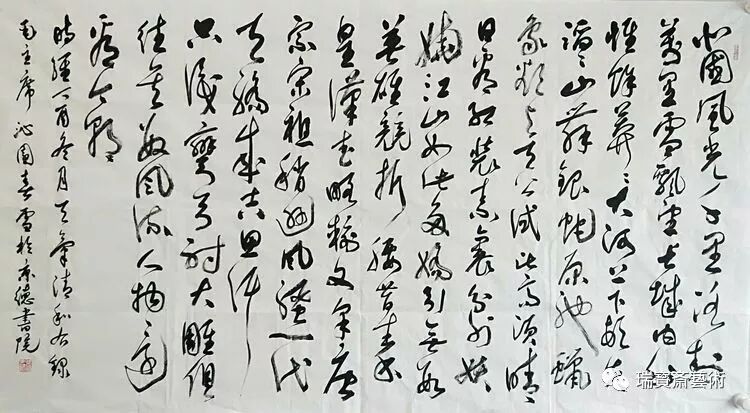 北國風光千里冰封
萬里雪飄望長城内外
惟餘莽〻大河上下頓失
滔〻山舞銀蛇原馳蠟
象欲与天公試比高須晴
日看紅裝素裹分外妖
嬈江山如此多嬌引無数
英雄競折腰惜秦
皇漢武略輸文采唐
宗宋祖稍遜風騷一代
天驕成吉思汗
只識彎弓射大雕俱
往矣数風流人物還
看今朝
時經丁酉冬月天氣清和右録
毛主席沁園春雪於京德書院
瑞寶斎藝術